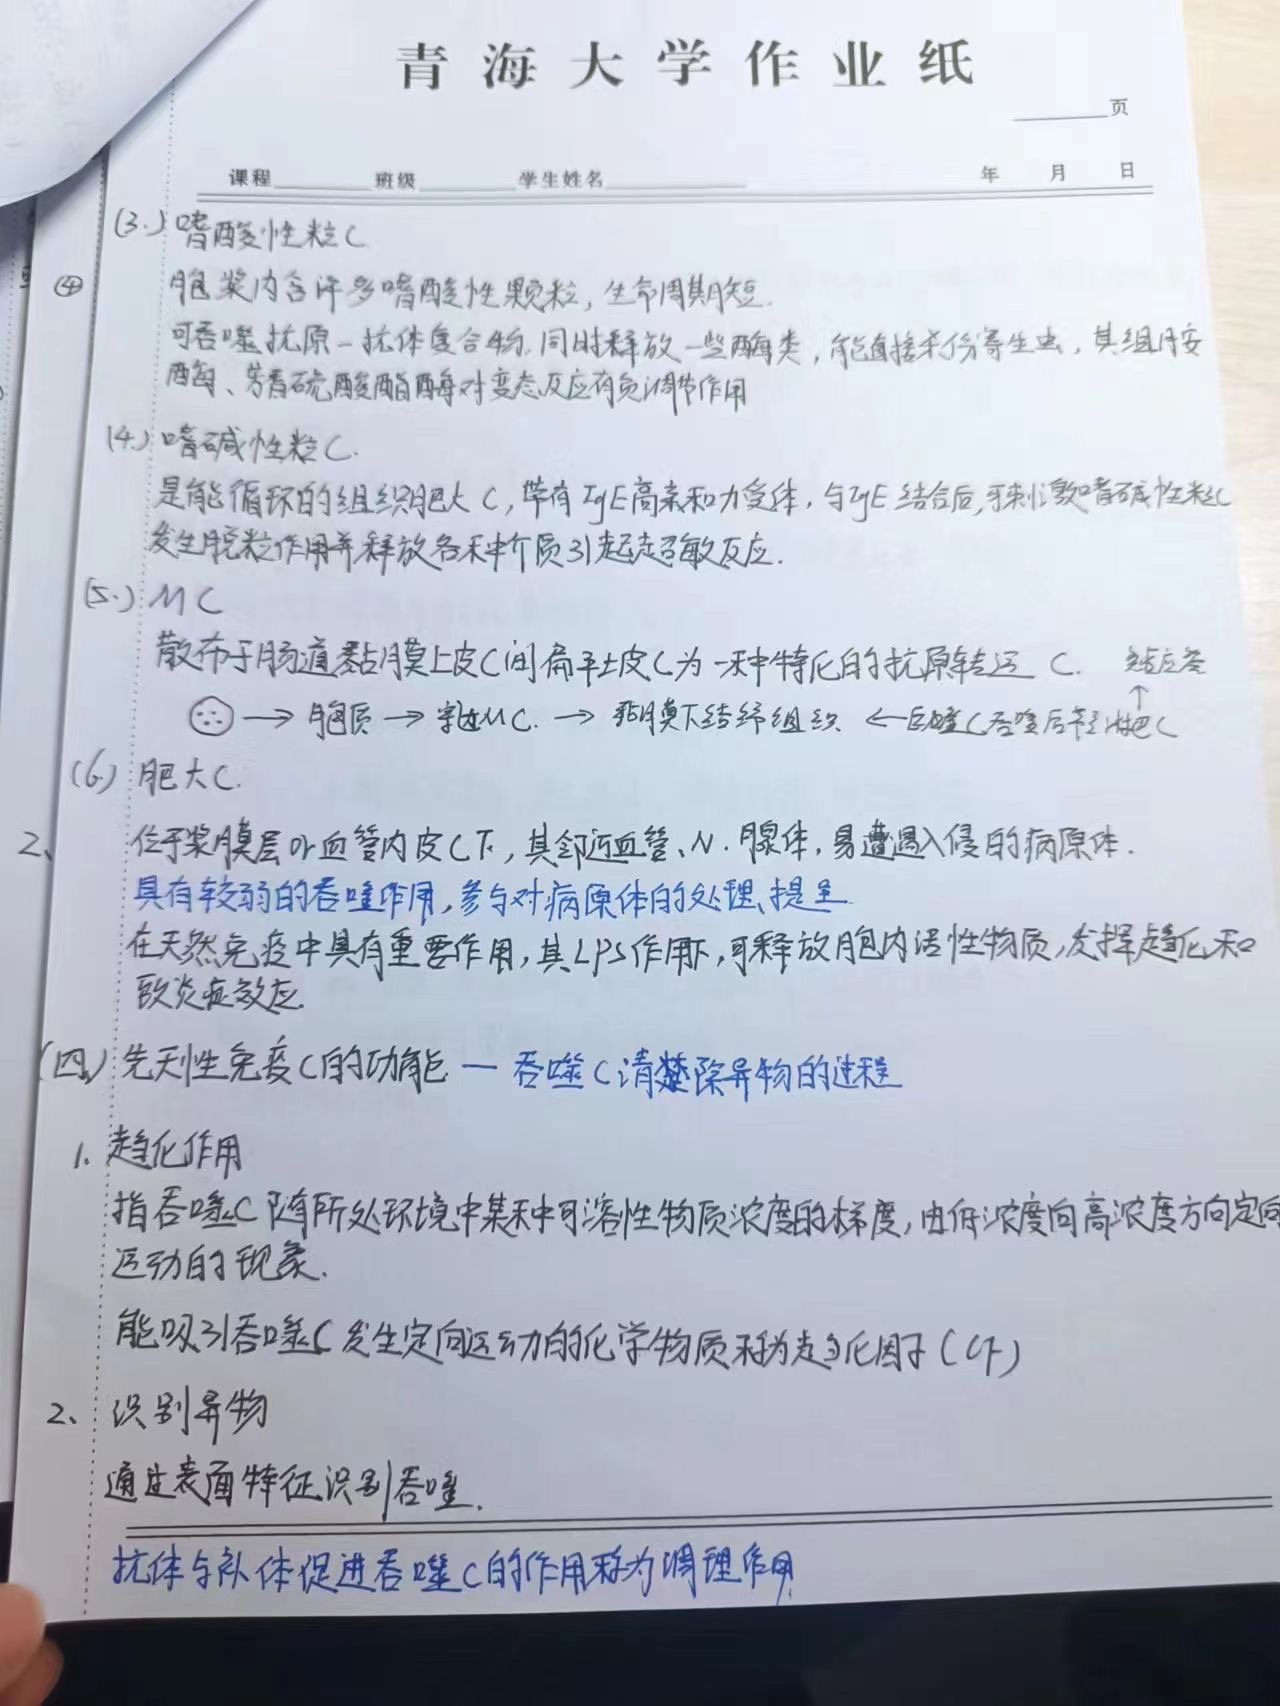 青海大学作业纸
页
课程 班级 学生姓名 年 月 日
(3.) 嗜酸性粒C
④ 胞浆内含许多嗜酸性颗粒，生命周期短.
可吞噬抗原-抗体复合物.同时释放一些酶类，能直接杀伤寄生虫，其组胺
酶、芳香硫酸酯酶对变态反应有负调节作用
(4.) 嗜碱性粒C.
是能循环的组织肥大C，带有IgE高亲和力受体，与IgE结合后,可刺激嗜碱性粒C
发生脱粒作用并释放各种介质引起超敏反应.
(5.) MC
散布于肠道黏膜上皮C间扁平上皮C为一种特化的抗原转运C. 免疫应答
→ 胞质 → 穿过MC. → 黏膜下结缔组织 ← 巨噬C吞噬后 靶C ↑
(6.) 肥大C.
2、 位于浆膜层or血管内皮C下，其邻近血管、N.腺体，易遭遇入侵的病原体.
具有较弱的吞噬作用，参与对病原体的处理、提呈
在天然免疫中具有重要作用，其LPS作用下，可释放胞内活性物质，发挥趋化和
致炎症效应.
(四) 先天性免疫C的功能 — 吞噬C清除异物的过程
1. 趋化作用
指吞噬C随所处环境中某种可溶性物质浓度的梯度，由低浓度向高浓度方向定向
运动的现象.
能吸引吞噬C发生定向运动的化学物质称为趋化因子(CF)
2、 识别异物
通过表面特征识别吞噬.
抗体与补体促进吞噬C的作用称为调理作用.